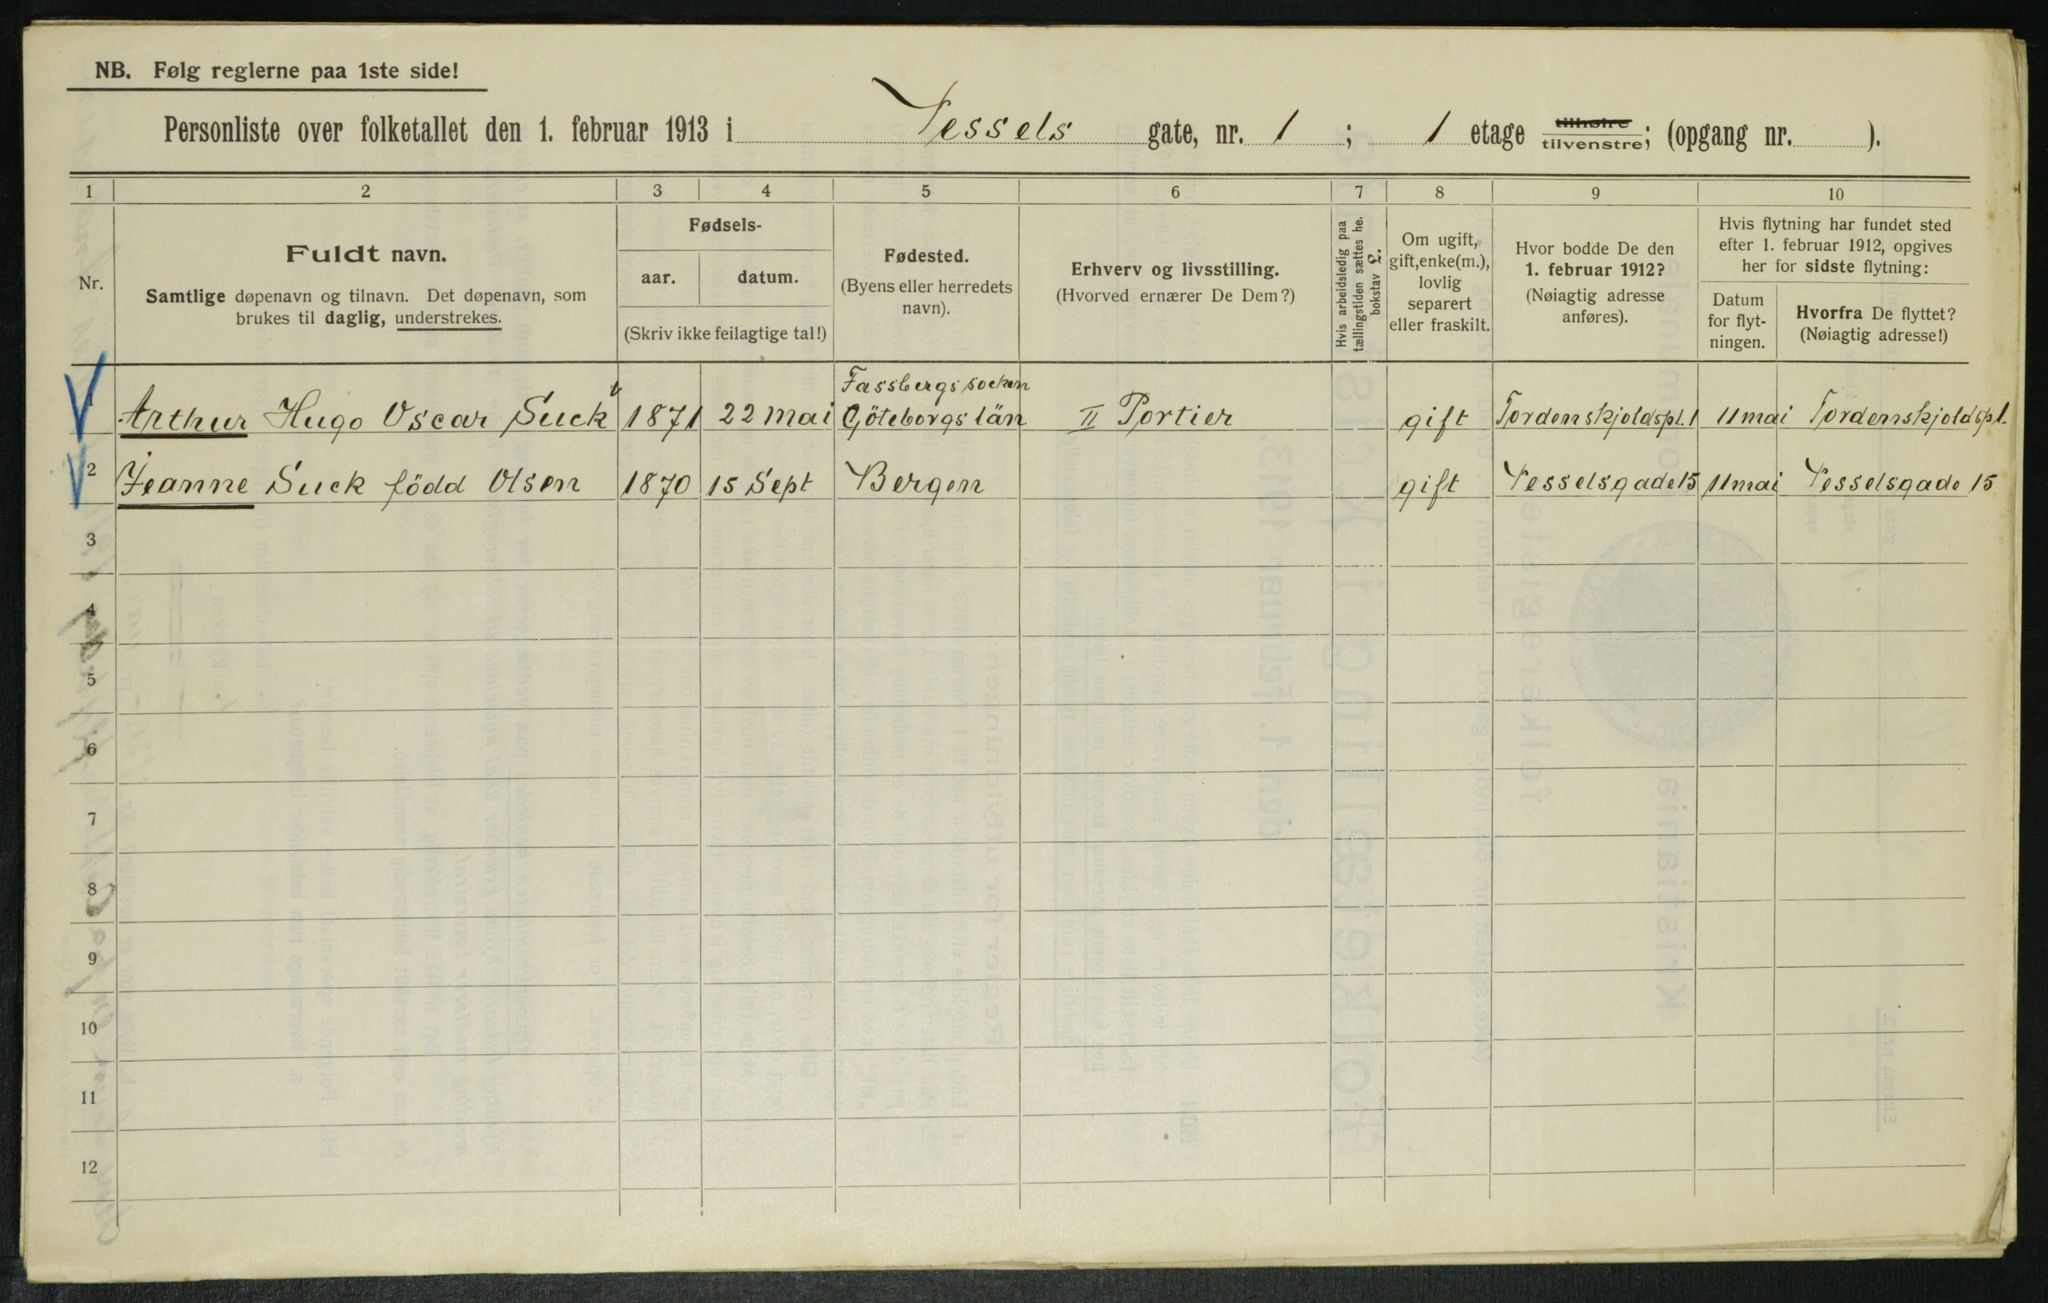 NB. Følg reglerne paa 1ste side!
Personliste over folketallet den 1. februar 1913 i Vessels gate, nr. 1 ; 1 etage tilhøire tilvenstre; (opgang nr. ).
1 2 3 4 5 6 7 8 9 10
Nr.
Fuldt navn.
Samtlige døpenavn og tilnavn. Det døpenavn, som
brukes til daglig, understrekes.
Fødsels-
aar. datum.
(Skriv ikke feilagtige tal!)
Fødested.
(Byens eller herredets
navn).
Erhverv og livsstilling.
(Hvorved ernærer De Dem?)
Hvis arbeidsledig paa
tællingstiden sættes he.
bokstav
Om ugift,
gift, enke(m.),
lovlig
separert
eller fraskilt.
Hvor bodde De den
1. februar 1912?
(Nøiagtig adresse
anføres).
Hvis flytning har fundet sted
efter 1. februar 1912, opgives
her for sidste flytning:
Datum
for flyt-
ningen.
Hvorfra De flyttet?
(Nøiagtig adresse!)
Fassbergs socken
1 Arthur Hugo Oscar Suck 1871 22 mai Göteborgs län II Portier gift Tordenskjoldspl. 1 11 mai Tordenskjoldspl 1.
2 Jeanne Suck född Olsen 1870 15 Sept Bergen gift Vesselsgade 15 11 mai Vesselsgade 15
3
4
5
6
7
8
9
10
11
12